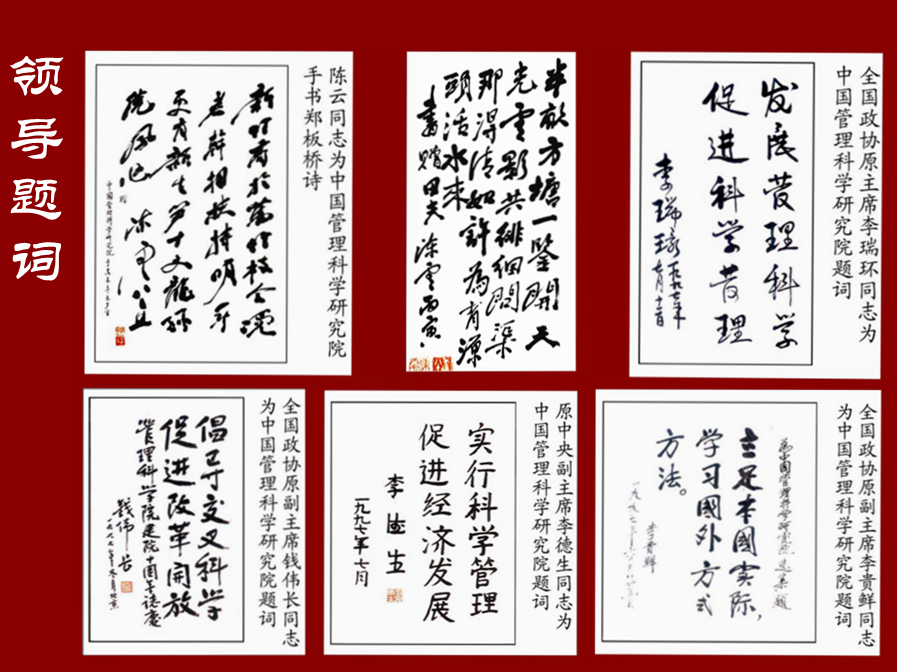 领导题词
陈云同志为中国管理科学研究院
手书郑板桥诗
新竹高於舊竹枝全凭
老幹相扶持明年
更有新生笋十丈龍孫
绕凤池
中国管理科学研究院
陈云
半畝方塘一鑒開天
光雲影共徘徊問渠
那得清如許為有源
頭活水来
書贈田夫 陈雲丙寅
全国政协原主席李瑞环同志为
中国管理科学研究院题词
发展管理科学
促进科学管理
李瑞环
全国政协原副主席钱伟长同志
为中国管理科学研究院题词
倡导交叉科学
促进改革開放
管理科学院建院十周年誌慶
钱伟长
原中央副主席李德生同志为
中国管理科学研究院题词
实行科学管理
促进经济发展
李德生
一九九七年七月
全国政协原副主席李贵鲜同志
为中国管理科学研究院题词
为中国管理科学研究院
立足本國实际，
学习國外方式
方法。
李贵鲜